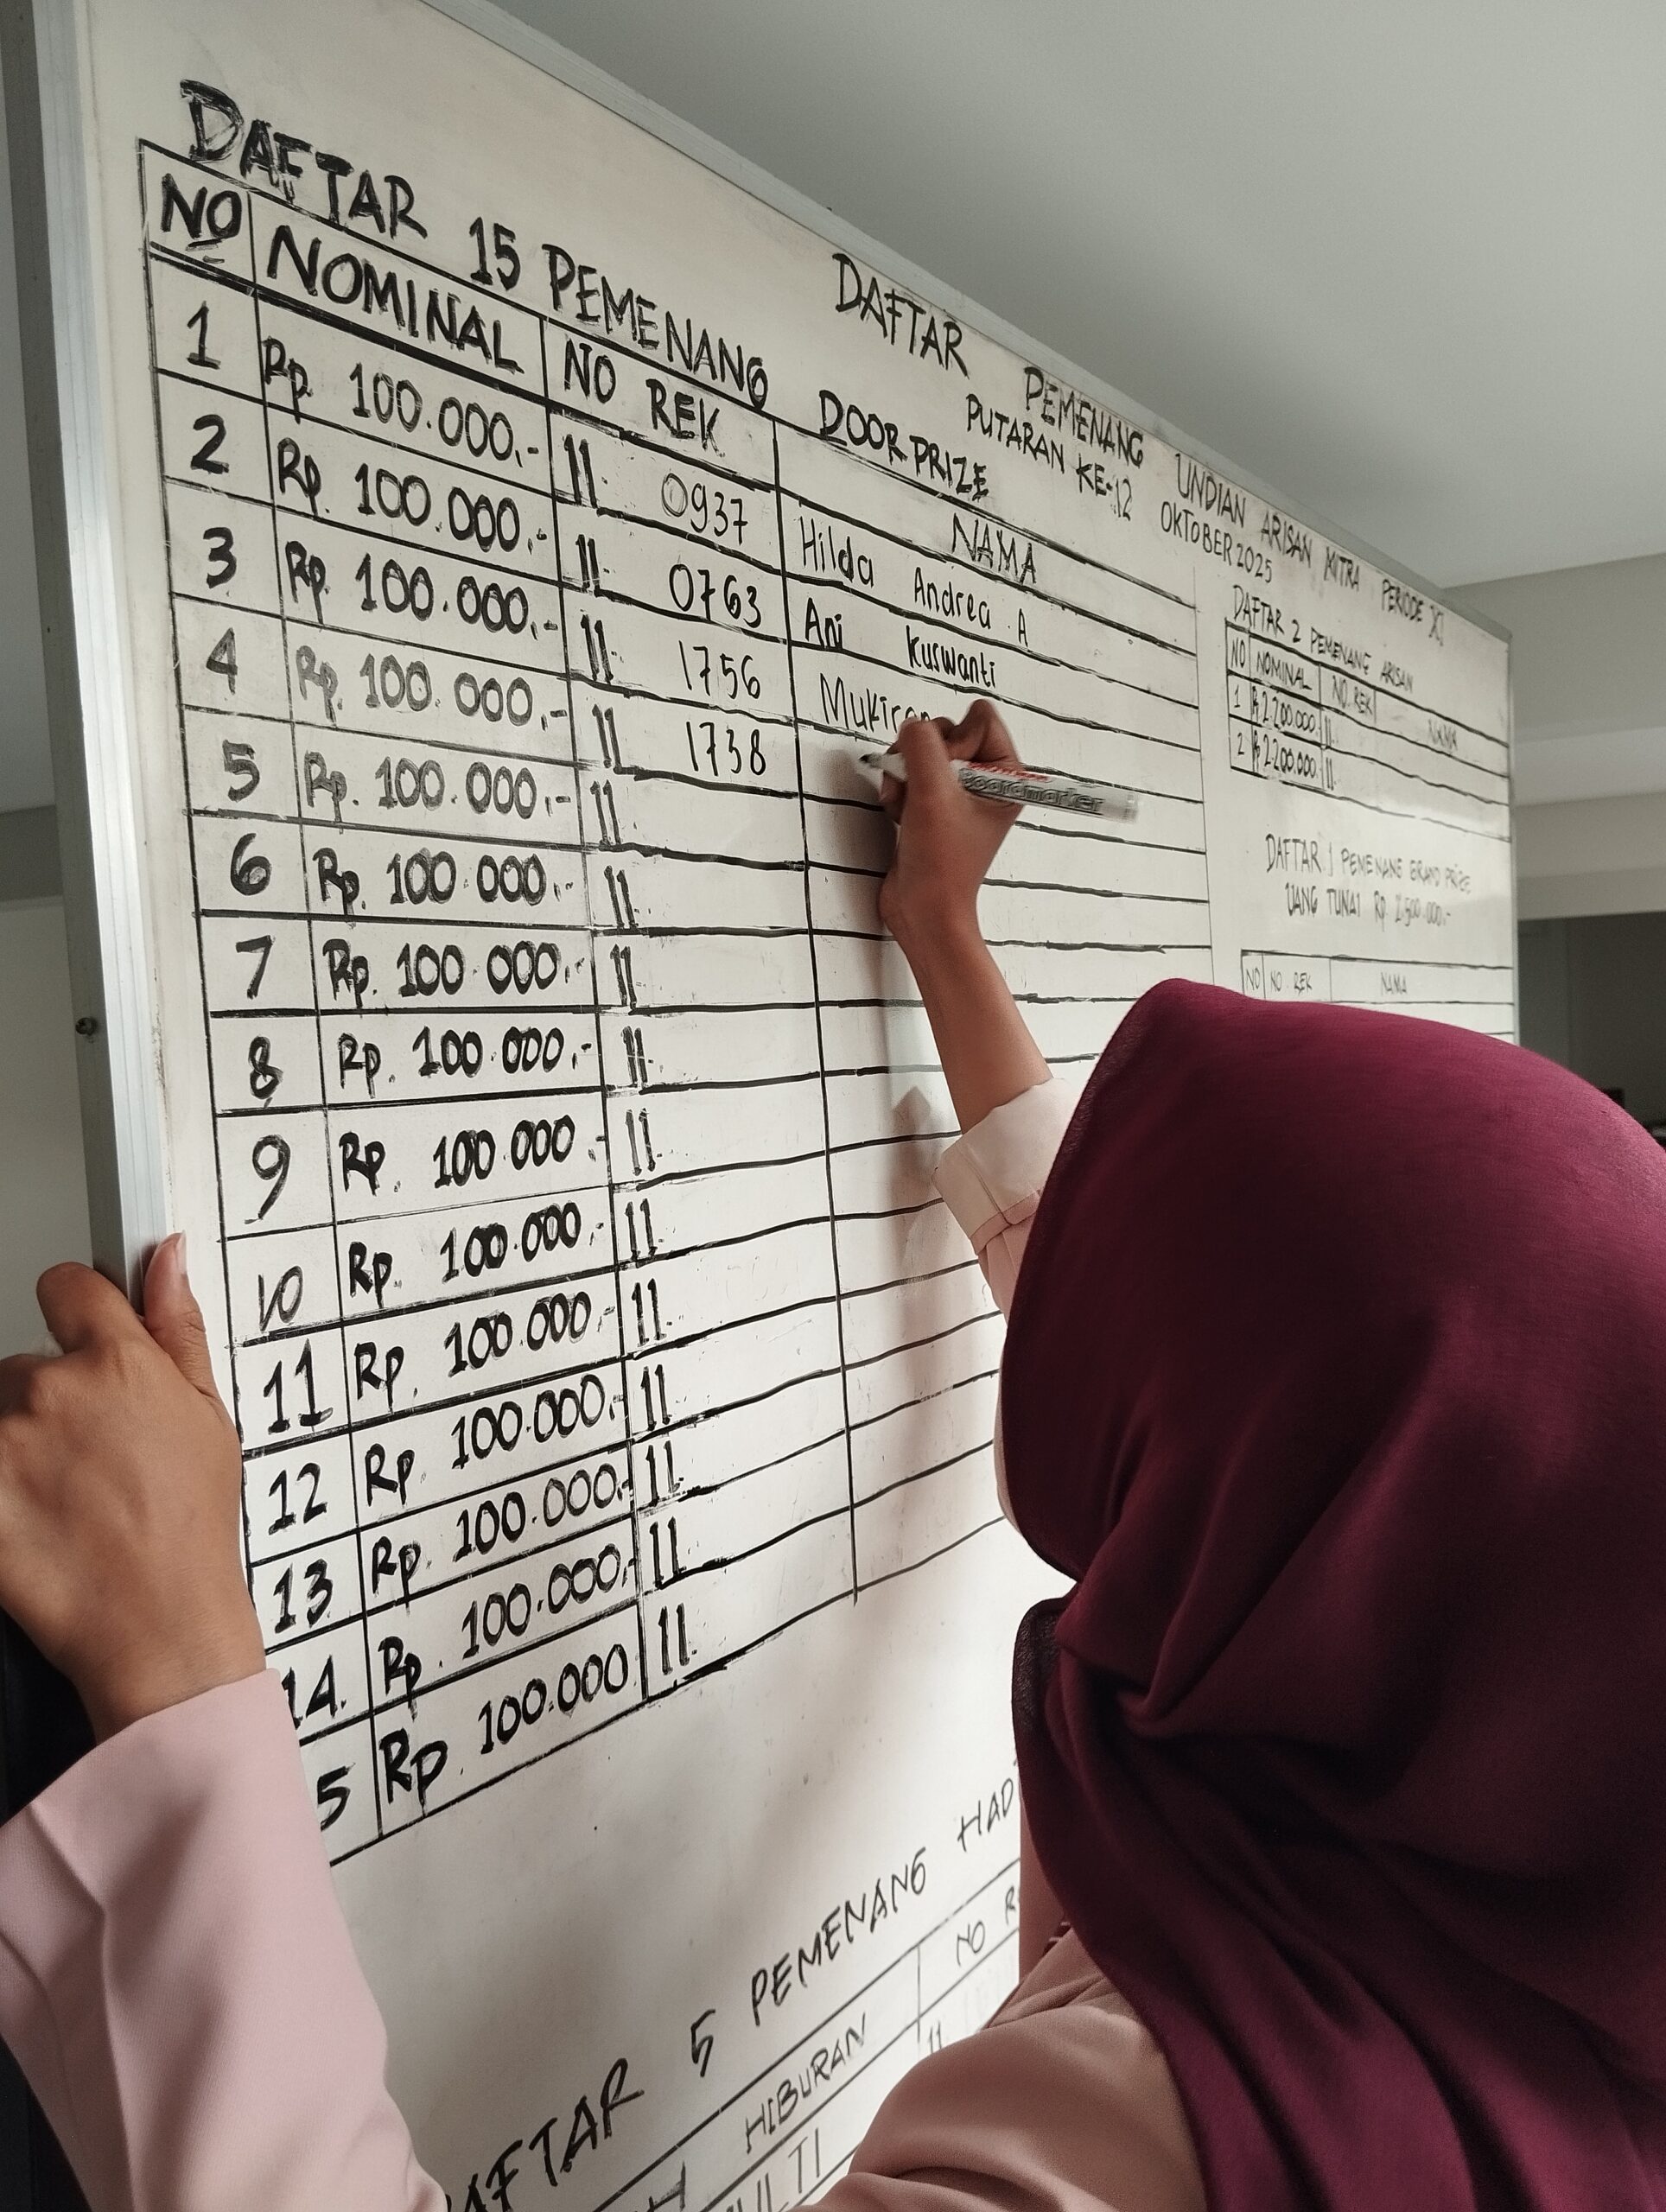 DAFTAR PEMENANG UNDIAN ARISAN MITRA PERIODE XI
PUTARAN KE-12 OKTOBER 2025
DAFTAR 15 PEMENANG DOORPRIZE
NO NOMINAL NO REK NAMA
1 Rp 100.000,- 11. 0937 Hilda Andrea A
2 Rp. 100.000,- 11. 0763 Ani Kuswanti
3 Rp. 100.000,- 11. 1756
4 Rp. 100.000,- 11. 1738
5 Rp. 100.000,- 11.
6 Rp. 100.000,- 11.
7 Rp. 100.000,- 11.
8 Rp. 100.000,- 11.
9 Rp. 100.000,- 11.
10 Rp. 100.000,- 11.
11 Rp. 100.000,- 11.
12 Rp. 100.000,- 11.
13 Rp. 100.000,- 11.
14. Rp. 100.000,- 11.
5 Rp 100.000 11.
DAFTAR 2 PEMENANG ARISAN
NO NOMINAL NO. REK NAMA
1 Rp 2.200.000 11.
2 Rp 2.200.000 11.
DAFTAR 1 PEMENANG GRAND PRIZE
UANG TUNAI RP.
NO NO REK NAMA
5 PEMENANG
HIBURAN NO
11
boardmarker